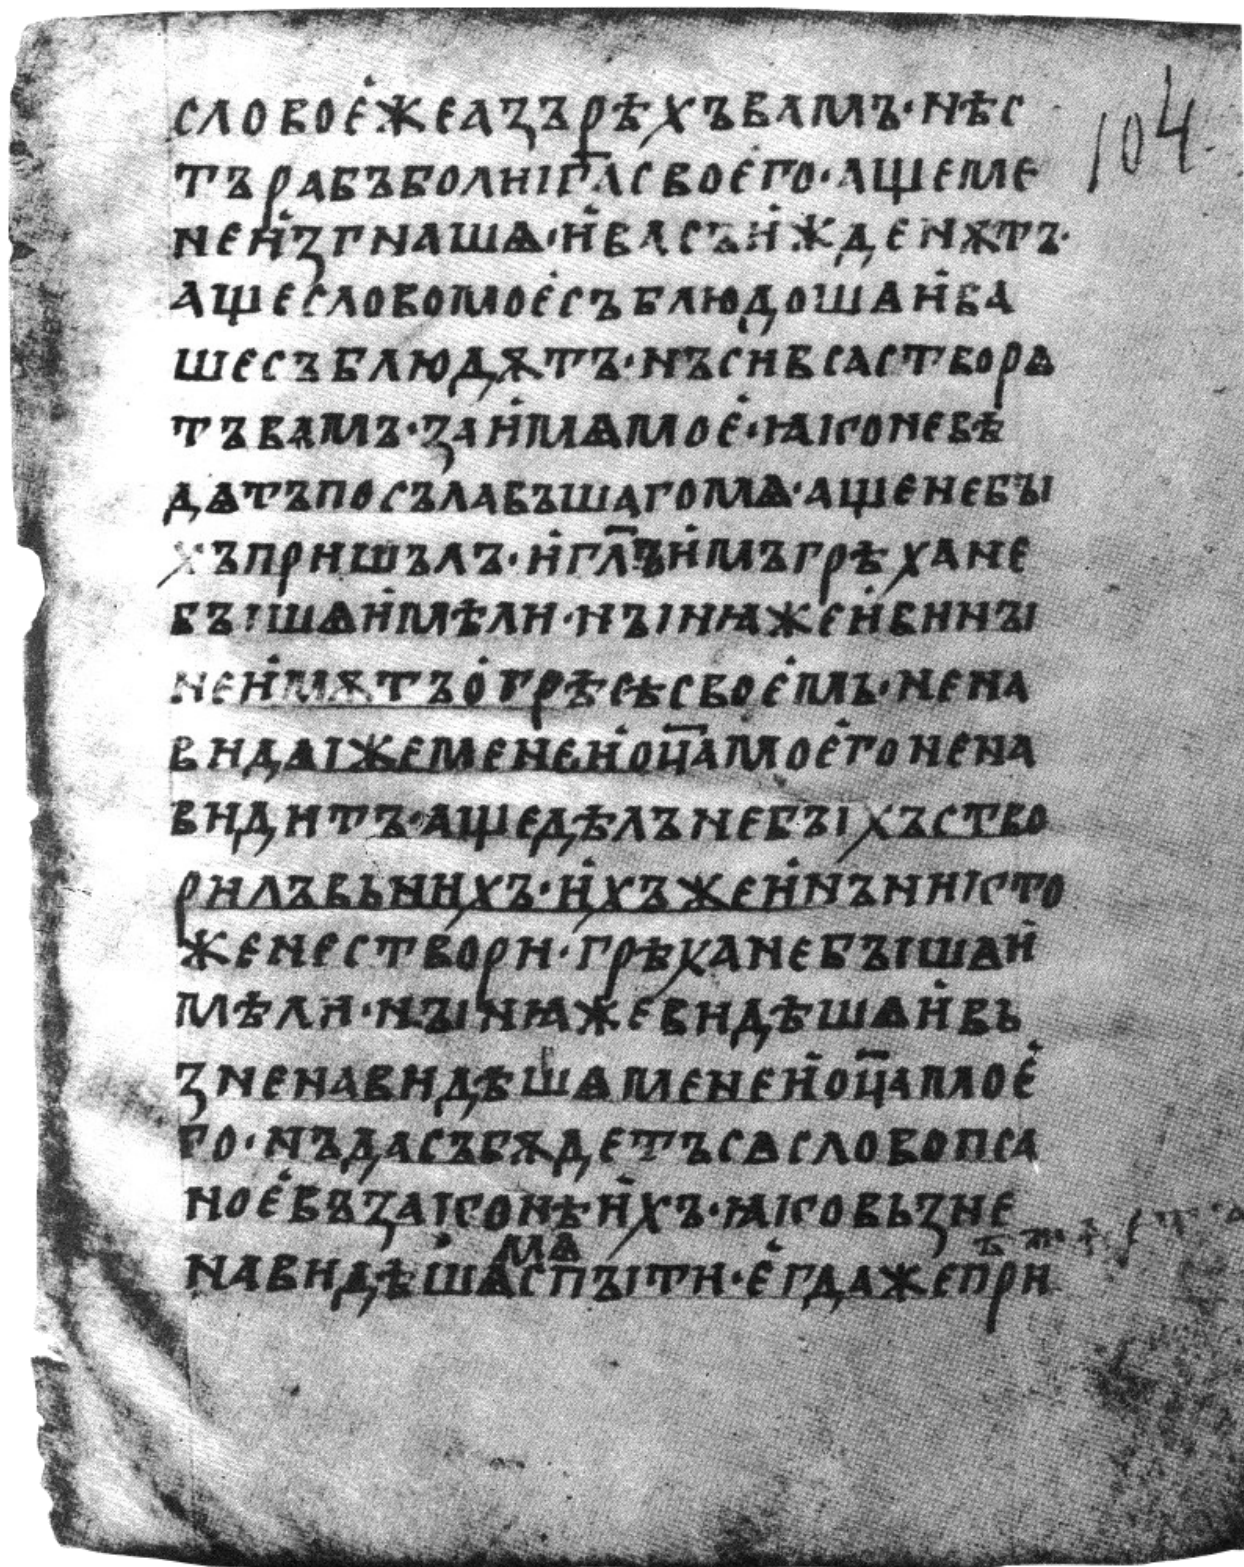 слово е҅же азъ рѣхъ вамъ· нѣс 104
тъ рабъ болни г҃а свое҅го· аще ме
не и҅згнашѧ· и҅ васъ и҅жденѫтъ·
аще слово мое҅ съблюдошѧ и҅ ва
ше съблюдѫтъ· нъ си вса створѧ
тъ вамъ· за и҅мѧ мое҅· ꙗко не вѣ
дѧтъ посълавъшаго мѧ· аще не бꙑ
хъ пришълъ· и҅ гл҃ъ и҅мъ грѣха не
бꙑшѧ и҅мѣли· нꙑнꙗ же и҅ винꙑ
не и҅мѫтъ о҅ грѣсѣ свое҅мь· нена
видѧі же мене и҅ оц҃а мое҅го нена
видитъ· аще дѣлъ не бꙑхъ ство
рилъ вь нихъ· и҅хъ же и҅нъ никто
же не створи· грѣха не бꙑшѧ и҅
мѣли· нꙑнꙗ же видѣшѧ и҅ вь
зненавидѣшѧ мене и҅ оц҃а мое҅
го· нъ да събѫдетъ сѧ слово пса
ное҅ въ законѣ и҅хъ· ꙗко вьзне
навидѣшѧ мѧ спꙑти· е҅гда же при